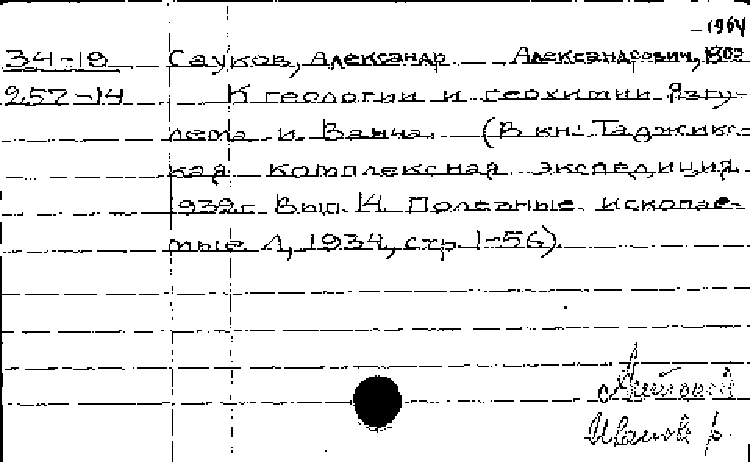 – 1964
34-18 Сауков, Александр Александрович, 1902
257-14 К геологии и геохимии Язгу-
лема и Ванча. (В кн.: Таджикс-
кая комплексная экспедиция
1932г. Вып. 14. Полезные ископае-
мые Л, 1934, стр. 1-56).
Иванов р.